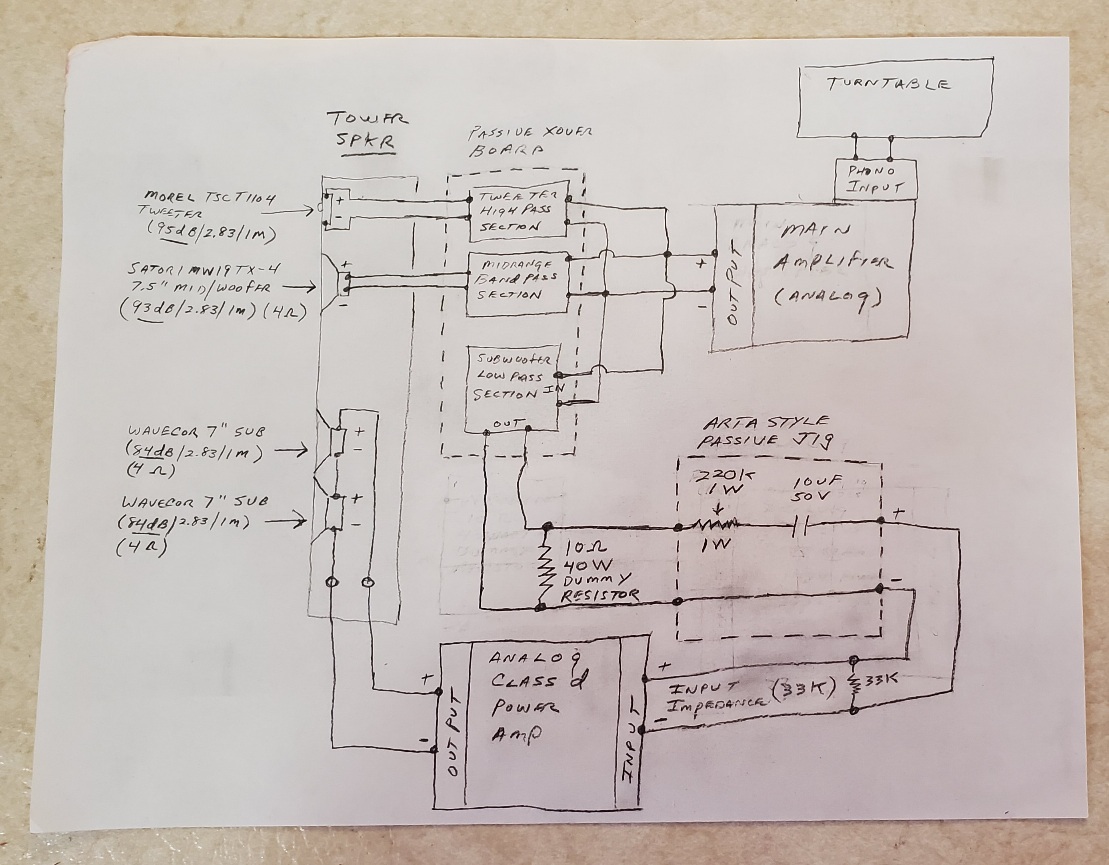 TURNTABLE
PHONO
INPUT
TOWER
SPKR
PASSIVE XOVER
BOARD
MOREL TSCT1104
TWEETER
(95dB/2.83/1M)
+
-
TWEETER
HIGH PASS
SECTION
MAIN
AMPLIFIER
(ANALOG)
OUTPUT
+
-
SATORI MW19TX-4
7.5" MID/WOOFER
(93dB/2.83/1M) (4Ω)
+
-
MIDRANGE
BAND PASS
SECTION
SUBWOOFER
LOW PASS
SECTION IN
OUT
WAVECOR 7" SUB
(84dB/2.83/1M)
(4Ω)
+
-
WAVECOR 7" SUB
(84dB/2.83/1M)
(4Ω)
+
-
ARTA STYLE
PASSIVE JIG
220K
1W
1W
10UF
50V
+
-
10Ω
40W
DUMMY
RESISTOR
ANALOG
CLASS d
POWER
AMP
OUTPUT
+
-
INPUT
+
-
INPUT
IMPEDANCE (33K)
33K